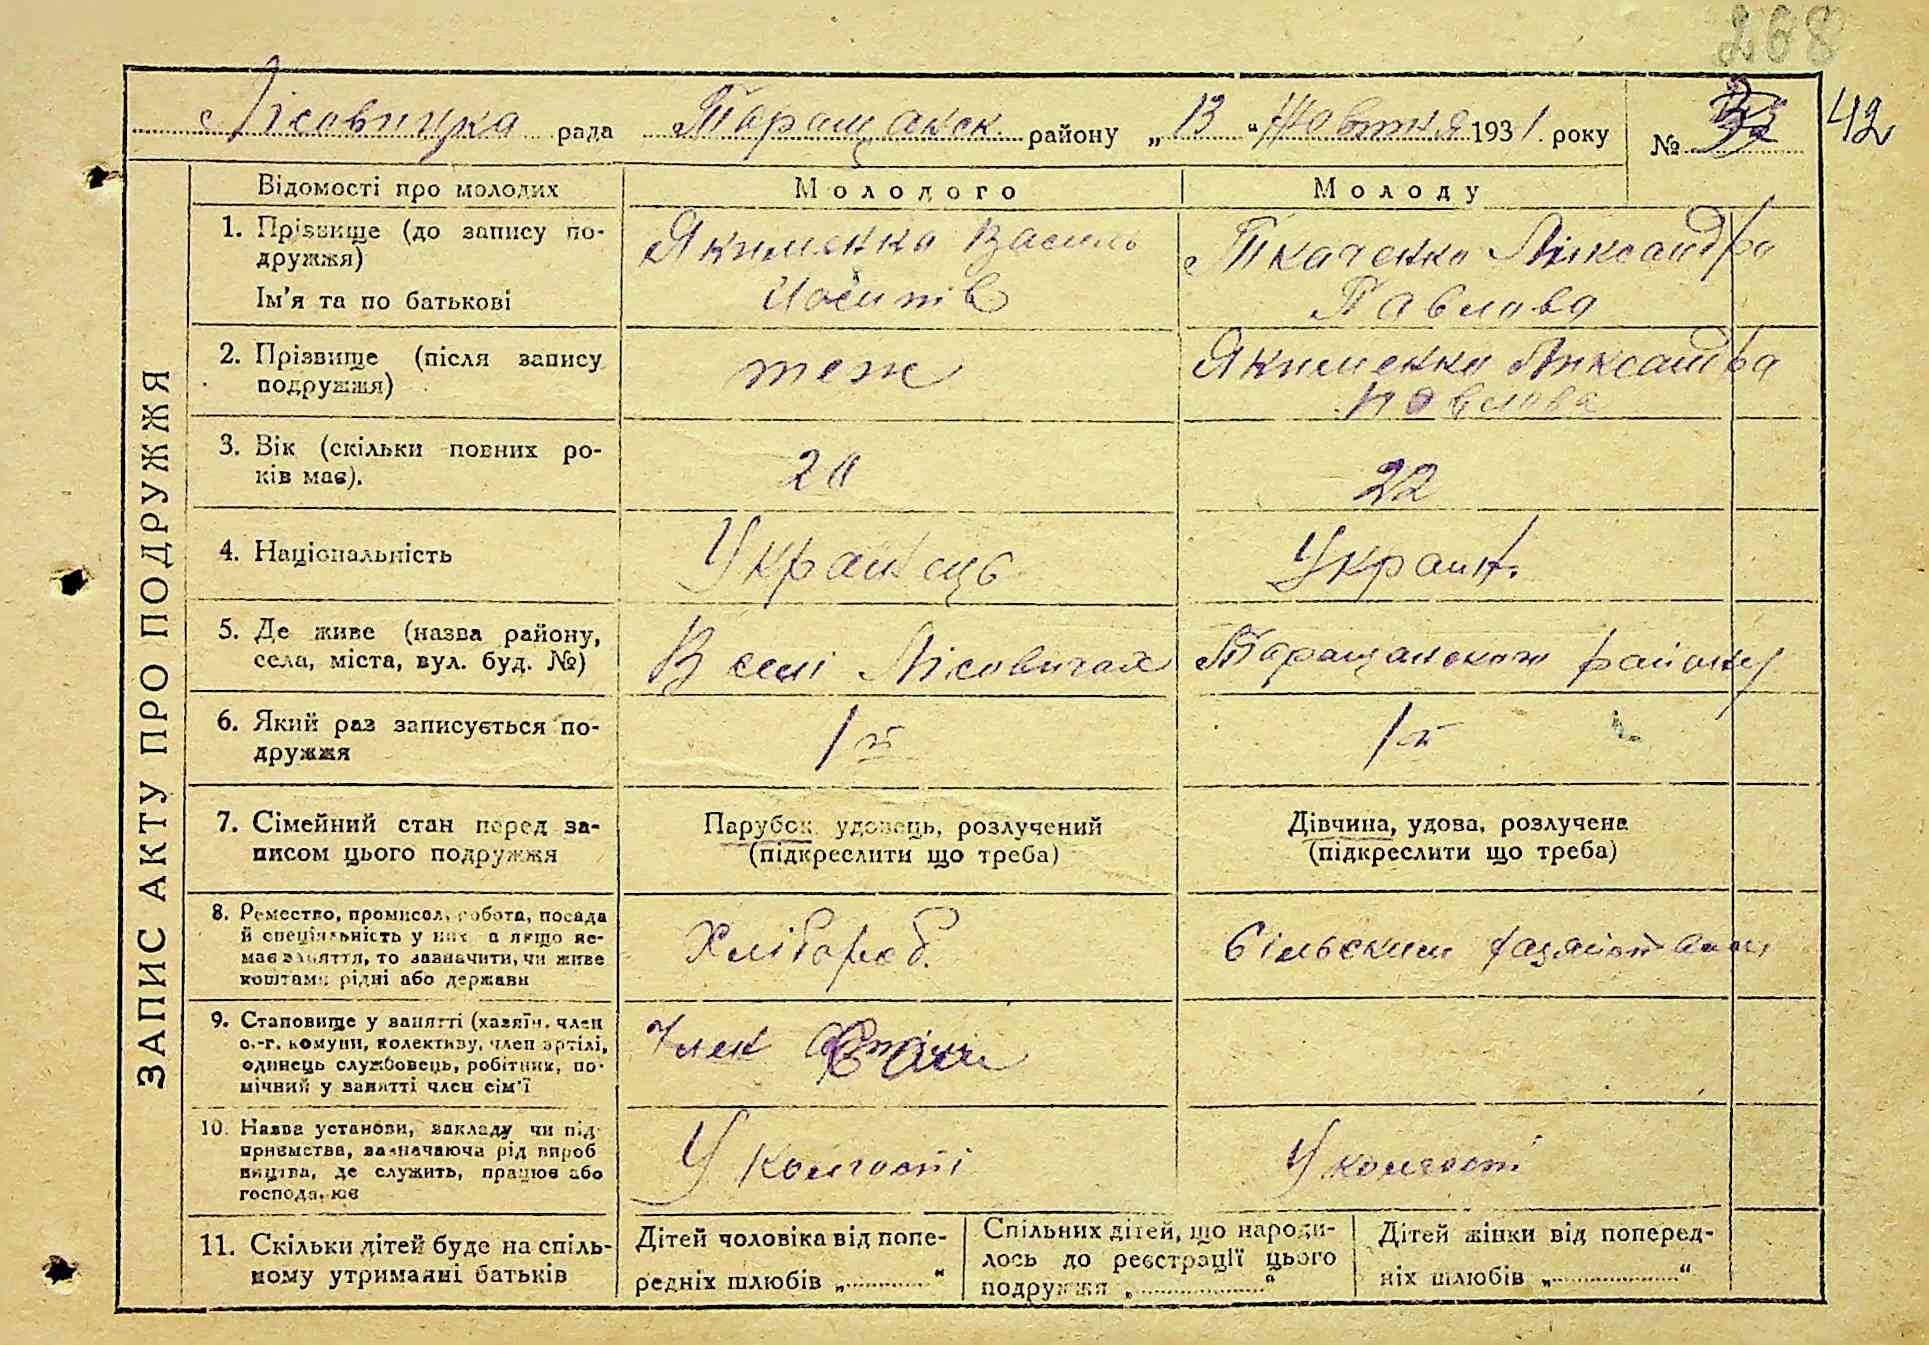 268
Лісовицка рада Таращанск. району „13“ Жовтня 1931 року № 42
ЗАПИС АКТУ ПРО ПОДРУЖЖЯ
Відомості про молодих Молодого Молоду
1. Прізвище (до запису по-
дружжя)
Ім'я та по батькові
Якименко Василь
Йосипів
Ткаченко Александра
Павлова
2. Прізвище (після запису
подружжя)
теж
Якименко Александра
Павлова
3. Вік (скільки повних ро-
ків має).
20
22
4. Національність
Українець
Україн.
5. Де живе (назва району,
села, міста, вул. буд. №)
В селі Лісовичах
Таращанского району
6. Який раз записується по-
дружжя
1й
1й
7. Сімейний стан перед за-
писом цього подружжя
Парубок, удовець, розлучений
(підкреслити що треба)
Дівчина, удова, розлучена
(підкреслити що треба)
8. Ремество, промисел, робота, посада
й спеціяльність у них, а якщо не-
має заняття, то зазначити, чи живе
коштами рідні або держави
Хлібороб.
Сільским
9. Становище у занятті (хазяїн, член
с.-г. комуни, колективу, член артілі,
одинець службовець, робітник, по-
мічний у занятті член сім'ї
Член
10. Назва установи, закладу чи під-
приємства, зазначаючи рід вироб
ництва, де служить, працює або
господарює
У колгоспі
У колгоспі
11. Скільки дітей буде на спіль-
ному утриманні батьків
Дітей чоловіка від попе-
редніх шлюбів „ “
Спільних дітей, що народи-
лось до реєстрації цього
подружжя „ “
Дітей жінки від поперед-
ніх шлюбів „ “